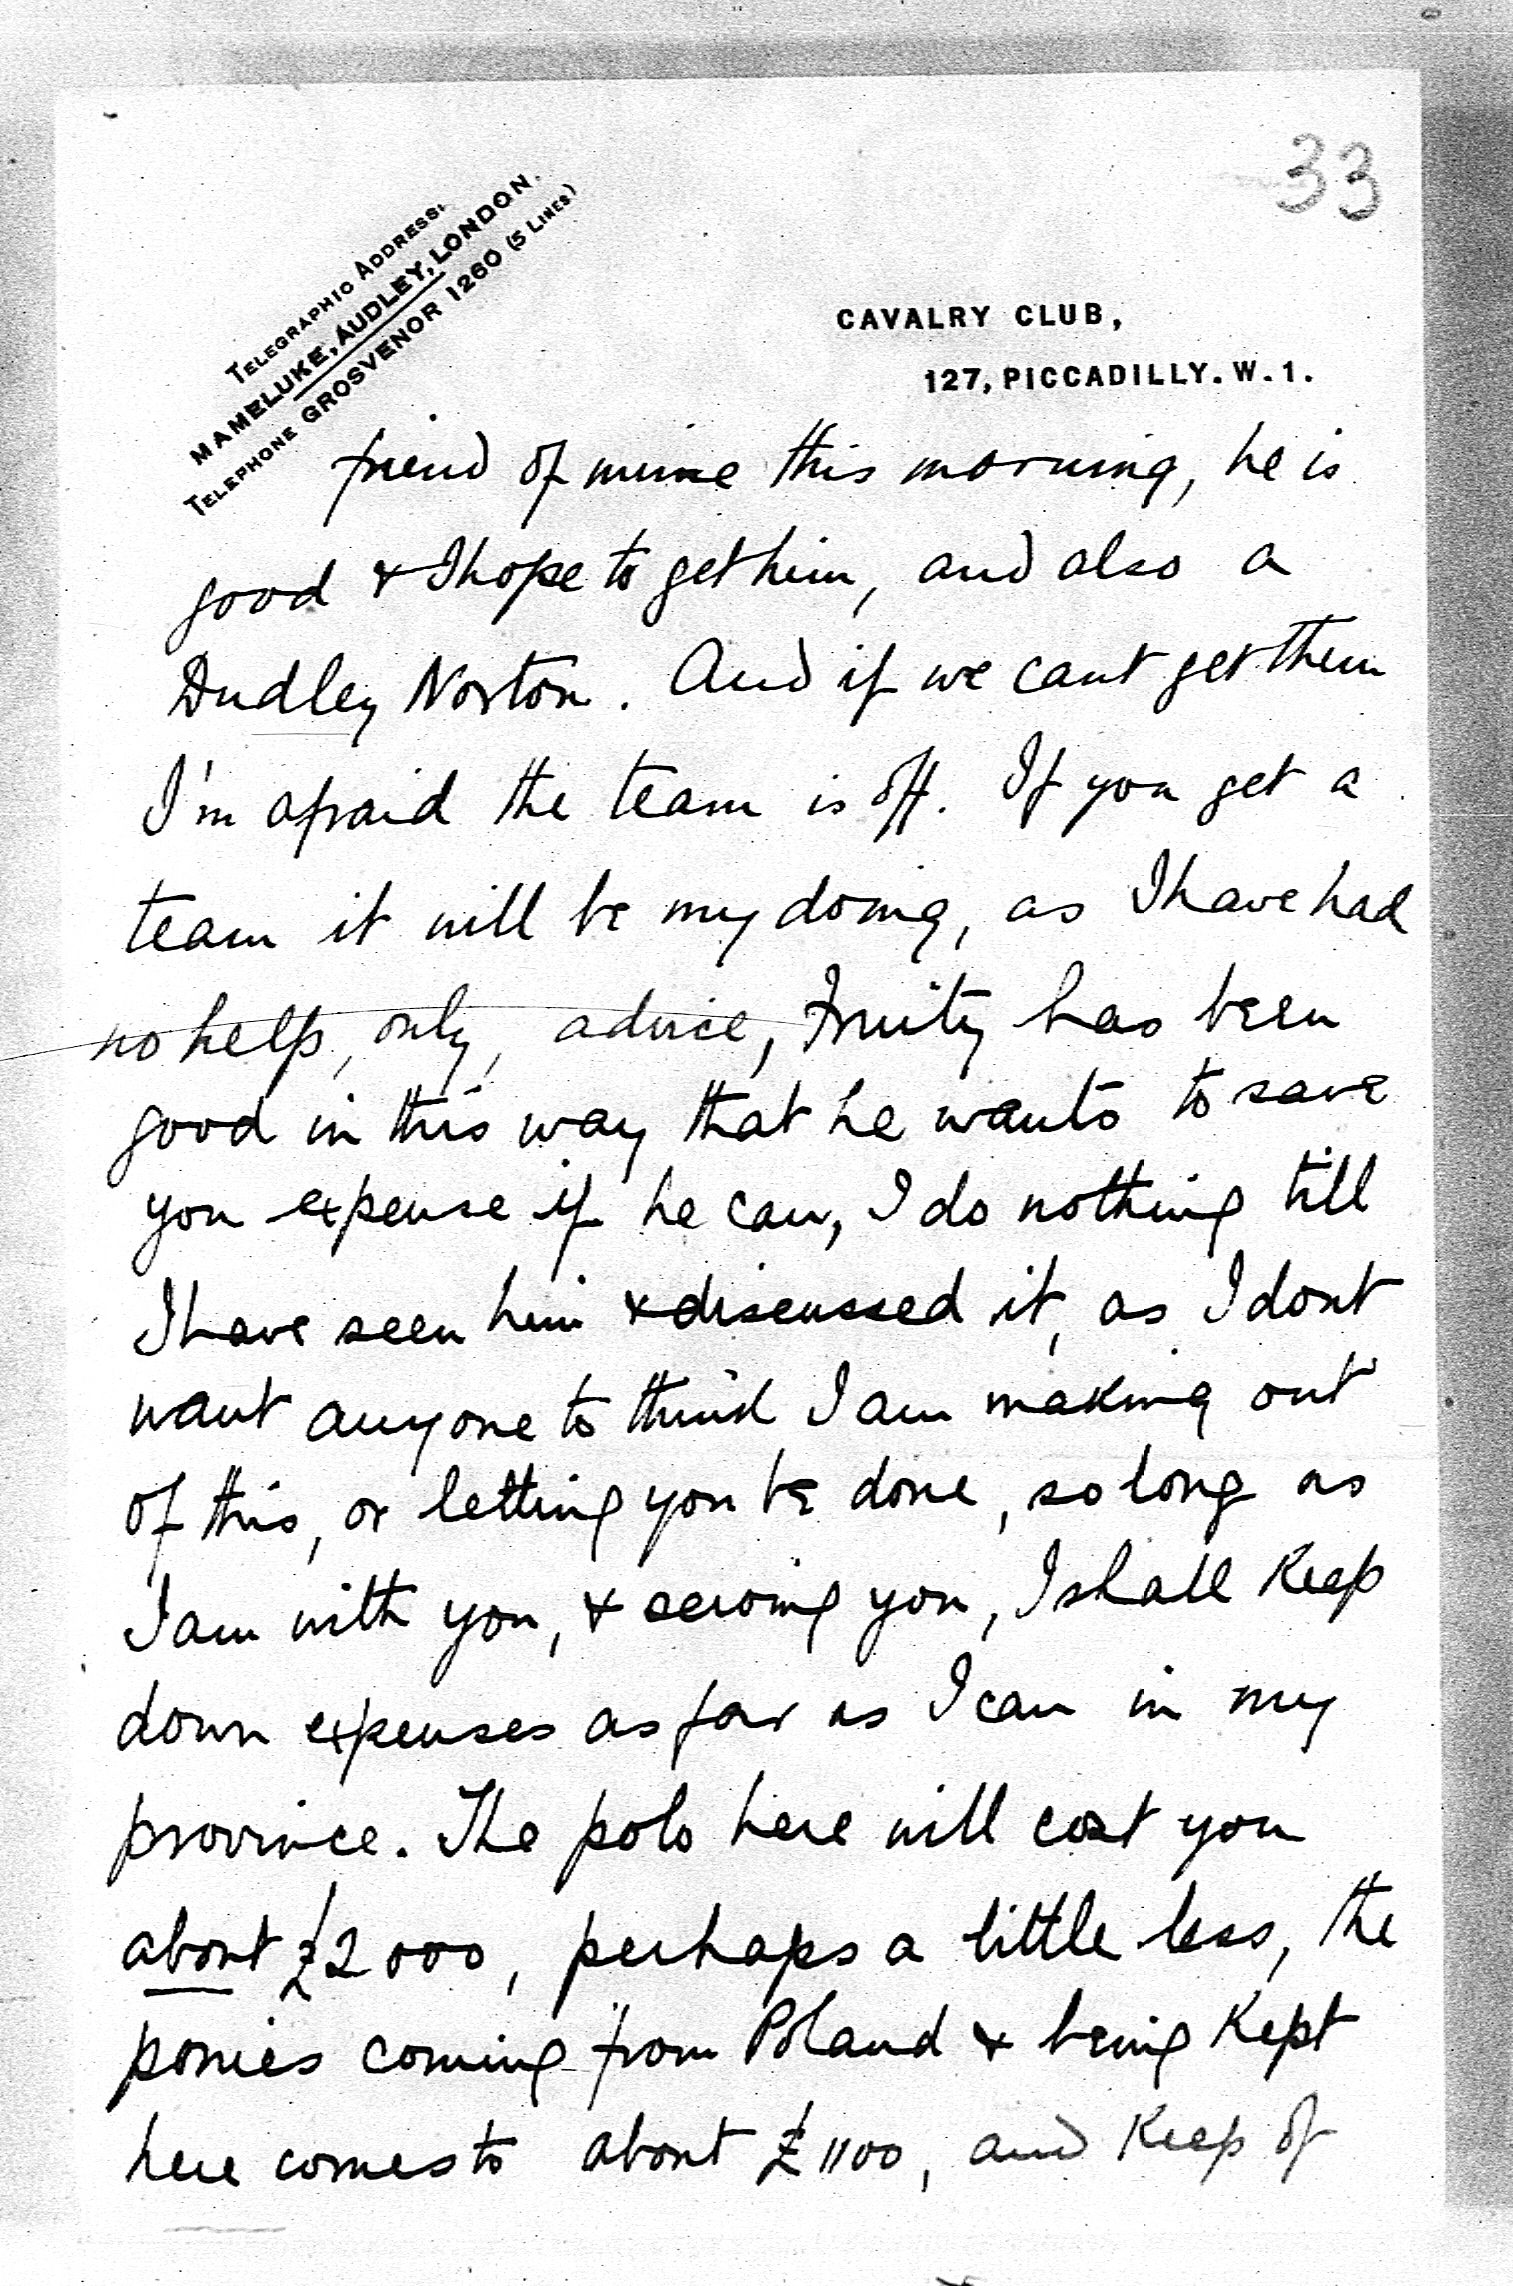 33
TELEGRAPHIC ADDRESS:
MAMELUKE, AUDLEY, LONDON.
TELEPHONE GROSVENOR 1260 (5 LINES)
CAVALRY CLUB,
127, PICCADILLY. W.1.
friend of mine this morning, he is
good & I hope to get him, and also a
Dudley Norton. And if we cant get them
I'm afraid the team is off. If you get a
team it will be my doing, as I have had
no help, only, advice, Fruity has been
good in this way that he wants to save
you expense if he can, I do nothing till
I have seen him & discussed it, as I dont
want anyone to think I am making out
of this, or letting you be done, so long as
I am with you, & serving you, I shall keep
down expenses as far as I can in my
province. The polo here will cost you
about £2000, perhaps a little less, the
ponies coming from Poland & being kept
here comes to about £1100, and keep of